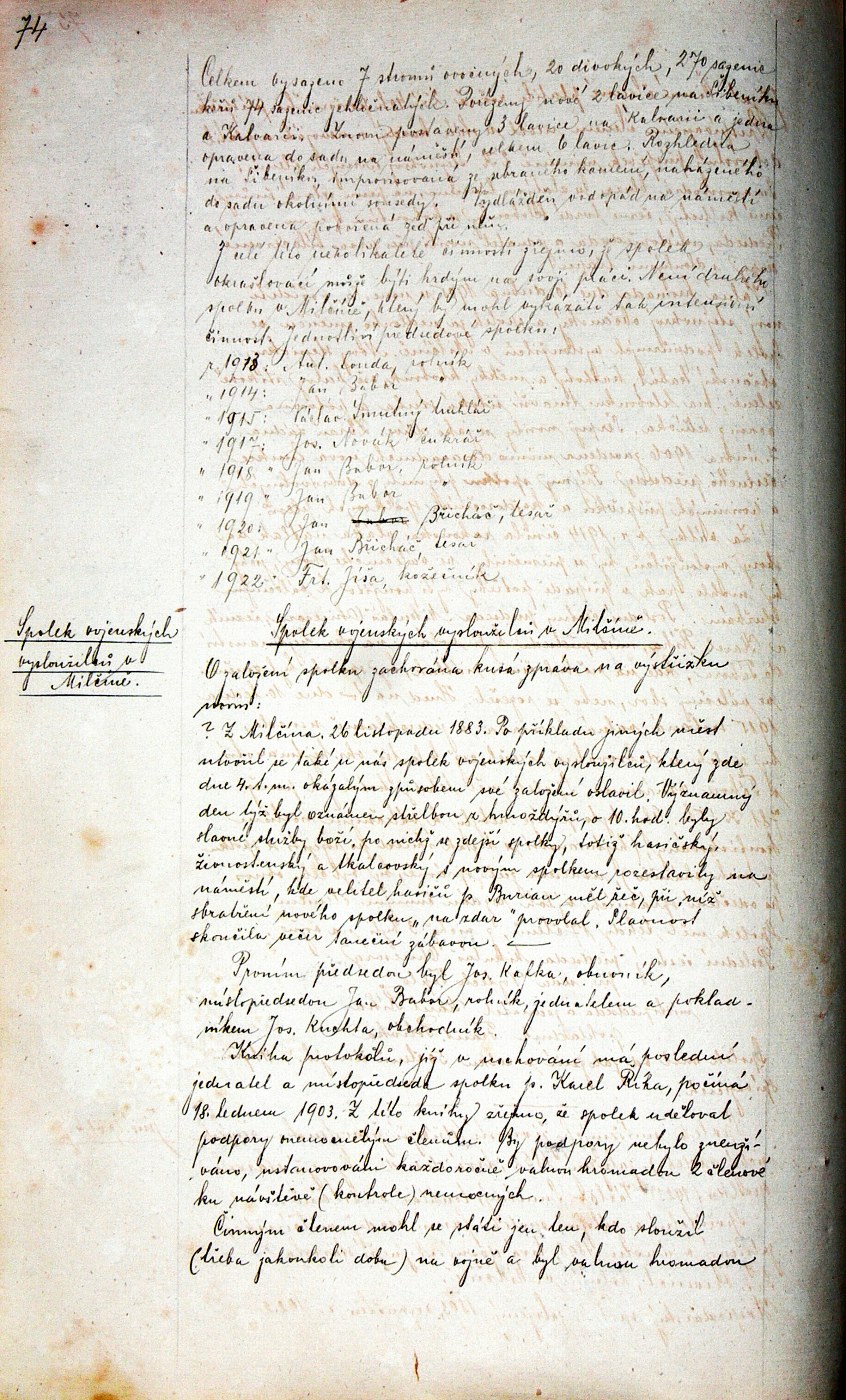 74
Celkem vysazeno 7 stromů ovocných, 20 divokých, 270 sazenic
keřů 74 sazenic jehličnatých. Pořízeny nové 2 lavice na Šibeníku
a Kalvarii. Znovu postaveny 3 lavice na Kalvarii a jedna
opravena do sadu na náměstí, celkem 6 lavic. Rozhledna
na Šibeníku, improvisovaná ze sebraného kamení, naházeného
do sadu okolními sousedy. Vydlážděn vodopád na náměstí
a opravena pobořená zeď při něm.
Z celé této několikaleté činnosti zřejmo, že spolek
okrašlovací může býti hrdým na svoji práci. Není druhého
spolku v Milčíně, který by mohl vykázati tak intensivní
činnost. Jednotliví předsedové spolku:
r. 1913: Ant. Conda, rolník
" 1914: Jan Babor "
" 1915: Václav Smutný truhlář
" 1917: Jos. Novák cukrář
" 1918 " Jan Babor, rolník
" 1919 " Jan Babor "
" 1920: Jan Babor Břicháč, tesař
" 1921 " Jan Břicháč, tesař
" 1922 " Frt. Jíša, kožešník
Spolek vojenských
vysloužilců v
Milčíně.
Spolek vojenských vysloužilců v Milčíně.
O založení spolku zachována kusá zpráva na výstřižku
novin:
? Z Milčína. 26 listopadu 1883. Po příkladu jiných měst
utvořil se také u nás spolek vojenských vysloužilců, který zde
dne 4. t. m. okázalým způsobem své založení oslavil. Významný
den týž byl oznámen střelbou z hmoždýřů, o 10. hod. byly
slavné služby boží, po nichž se zdejší spolky, totiž hasičský,
živnostenský a tkalcovský s novým spolkem rozestavily na
náměstí, kde velitel hasičů p. Burian měl řeč, při níž
sbratření nového spolku „na zdar" provolal. Slavnost
skončila večer taneční zábavou.
Prvním předsedou byl Jos. Kafka, obuvník,
místopředsedou Jan Babor, rolník, jednatelem a poklad-
níkem Jos. Kuchta, obchodník.
Kniha protokolů, jíž v uschování má poslední
jednatel a místopředseda spolku p. Karel Říha, počíná
18. lednem 1903. Z této knihy zřejmo, že spolek uděloval
podpory onemocnělým členům. By podpory nebylo zneuží-
váno, ustanovováni každoročně valnou hromadou 2 členové
ku návštěvě (kontrole) nemocných.
Činným členem mohl se státi jen ten, kdo sloužil
(třeba jakoukoli dobu) na vojně a byl valnou hromadou